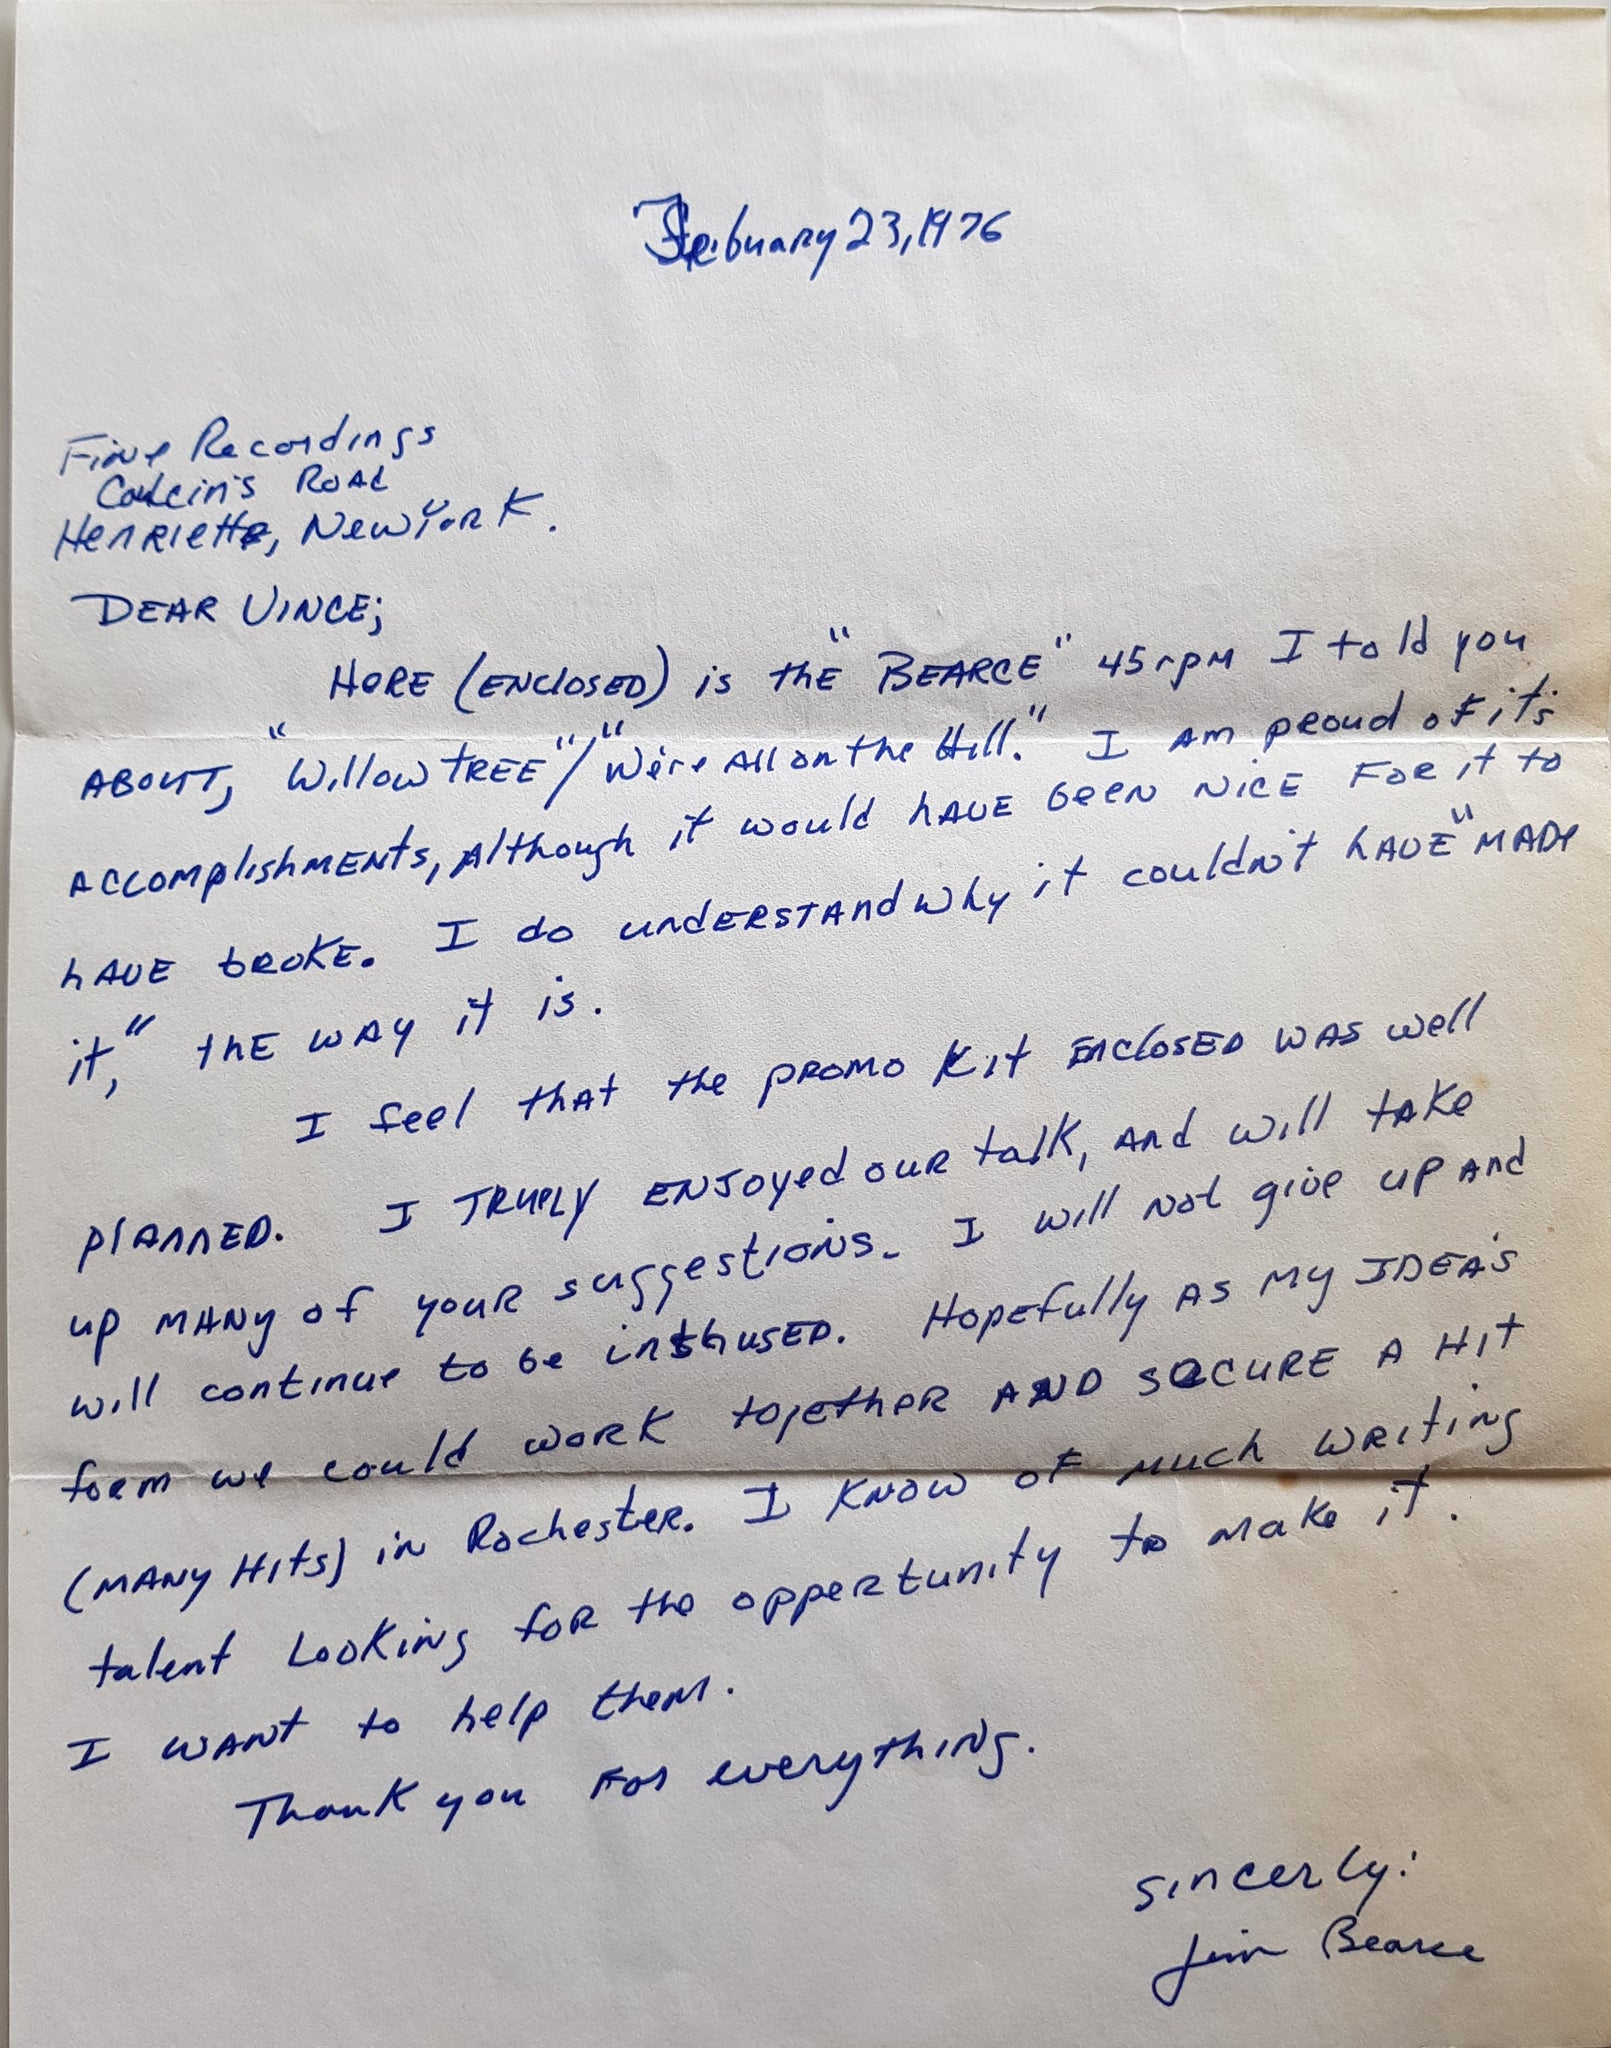 Febuary 23, 1976
Fine Recordings
Road
Henrietta, New York.
DEAR VINCE;
HERE (ENCLOSED) is the "BEARCE" 45 rpm I told you
ABOUT, "Willow TREE"/"We're All on the Hill." I AM proud of it's
ACCOMPlishMENts, Although it would hAVE been NICE FOR it to
hAVE broKE. I do undERSTANd why it couldn't hAVE "MADe
it," thE WAY it is.
I feel thAt the PROMO Kit ENCLOSED WAS well
PlANNED. I TRUELY ENJOYed OUR talk, ANd will take
up MANY of YOUR suggestioNS. I will not give up ANd
will continue to be inthUSED. HopEfully AS MY IDEA'S
foRm we could WORK togetheR AND SECURE A Hit
(MANY Hits) iN RochesteR. I KNOW OF MUCH WRitiNg
talent LOOKiNg foR the oppeRtunity to MAKe it.
I WANT to help theM.
Thank you FOR everythiNg.
Sincerly:
Jim Bearce